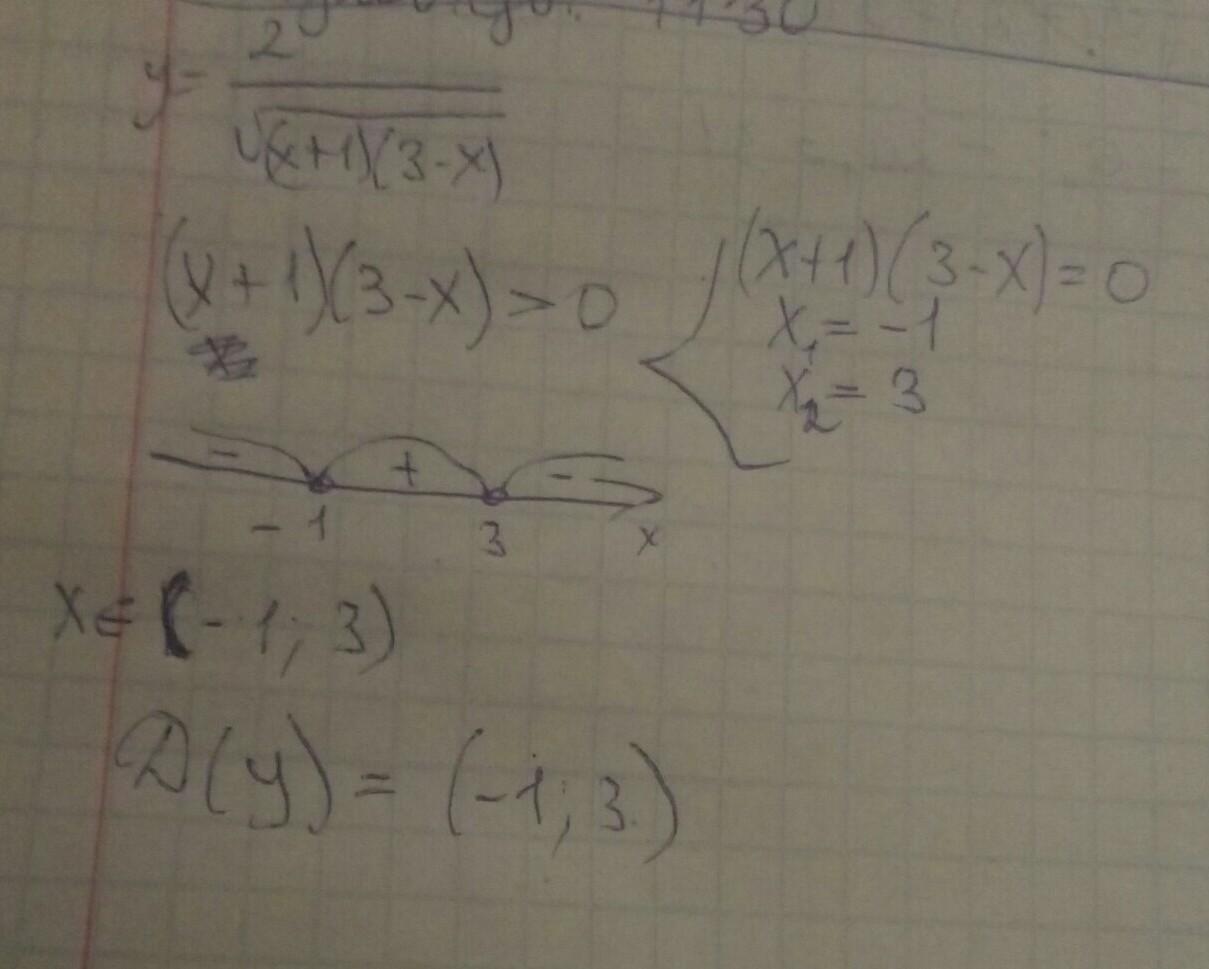 y= 2
√(x+1)(3-x)
(x+1)(3-x) > 0
(x+1)(3-x)=0
x₁ = -1
x₂ = 3
- + -
-1 3 x
x∈ (-1; 3)
D(y) = (-1; 3)